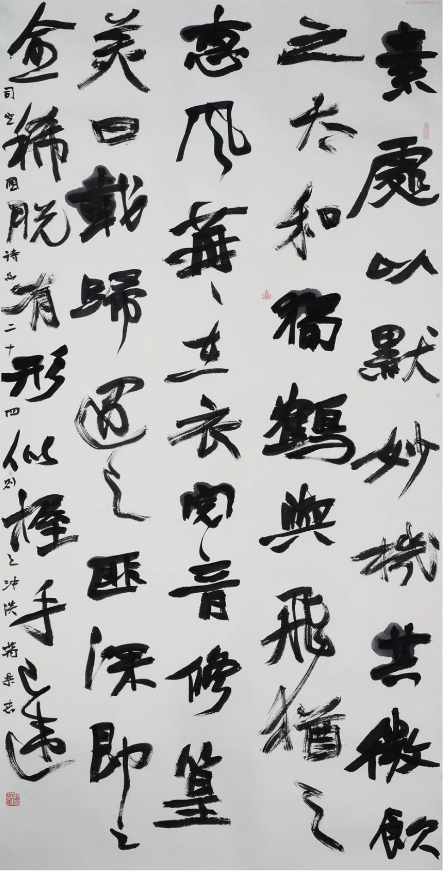 素處以默妙機其微飲
之太和獨鶴與飛猶之
惠風苒、在衣閱、音修篁
美曰載歸遇之匪深即之
愈稀脫有形似握手已違
司空图诗品二十四则之冲淡 蒋志